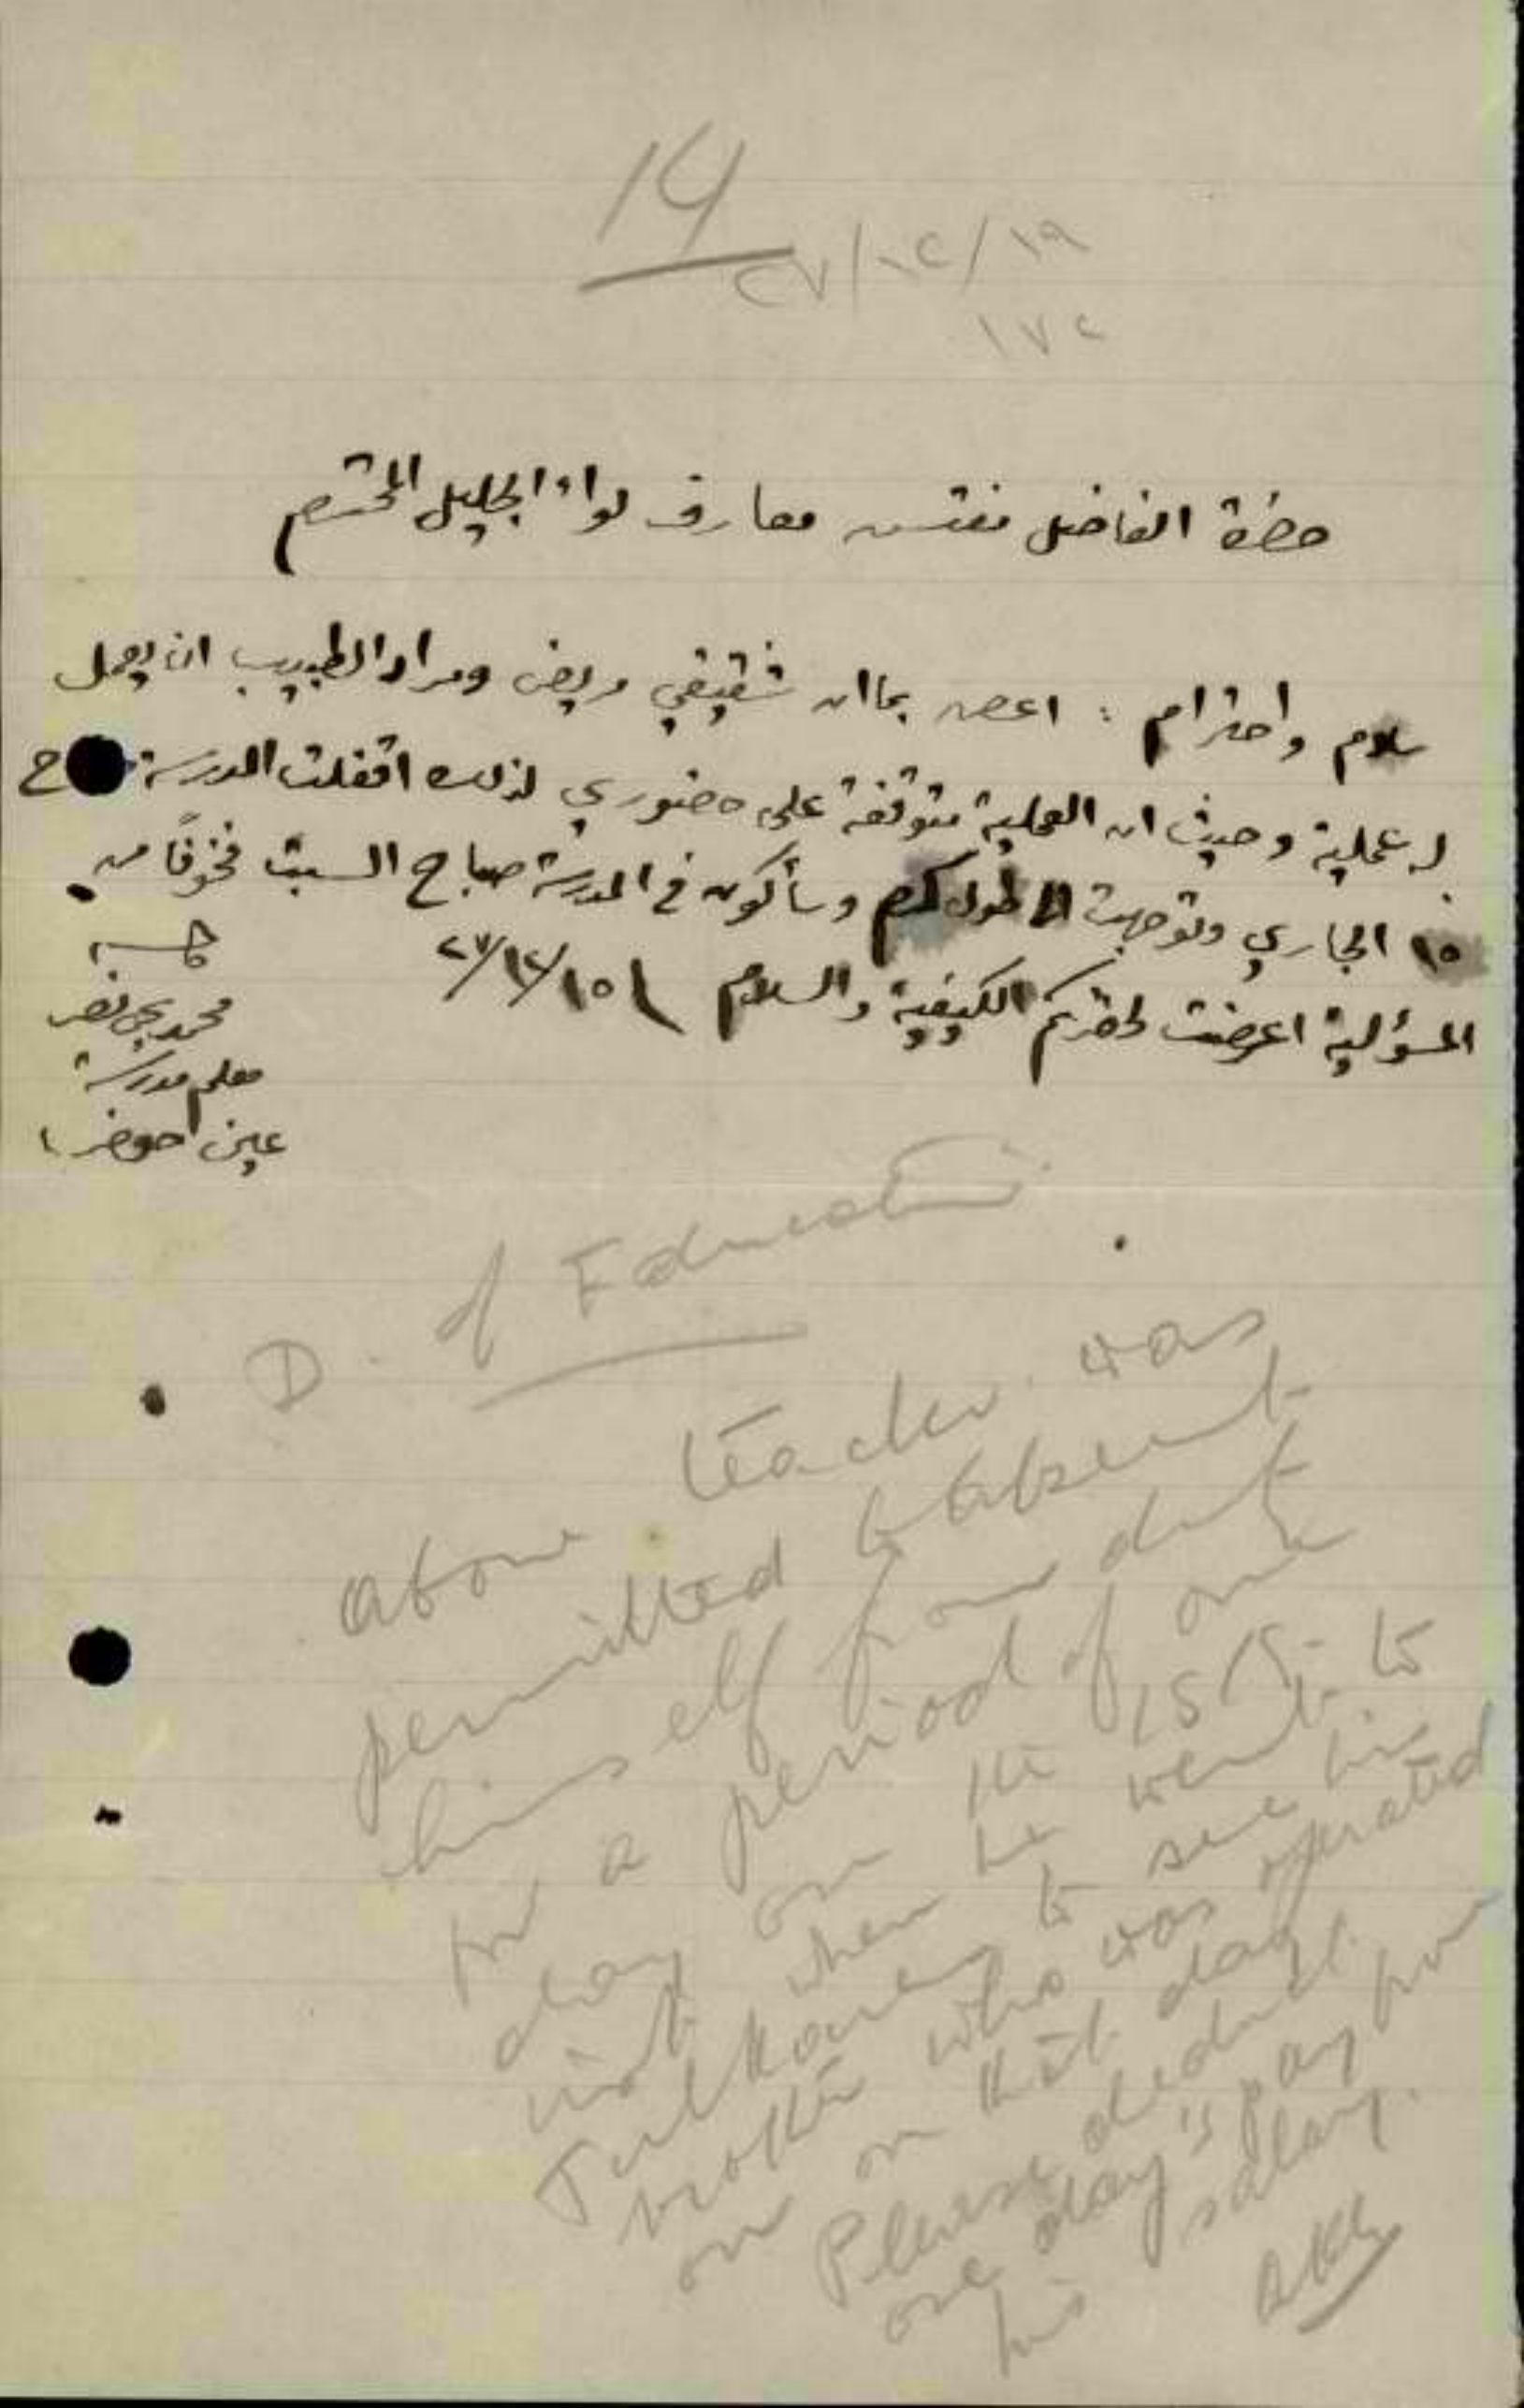 14
٢٧/١٢/١٩
١٧٢
حضرة الفاضل مفتش معارف لواء الجليل المحترم
سلام واحترام : اعرض بما ان شقيقي مريض ومراد الطبيب ان يعمل
له عملية وحيث ان العملية متوقفة على حضوري لذلك اقفلت المدرسة
١٥ الجاري وتوجهت الى طولكرم وسأكون في المدرسة صباح السبت فخوفًا من
المسؤلية اعرضت لحضرتكم الكيفية والسلام ٢٧/١٢/١٥
محمد يحي نصر
معلم مدرسة
عين حوض
D. of Education
above teacher was
permitted to absent
himself from duty
for a period of one
day on the 15th
inst. when he went to
Tulkarem to see his
brother who was operated
on on that day.
Please deduct
one day's pay from
his salary.